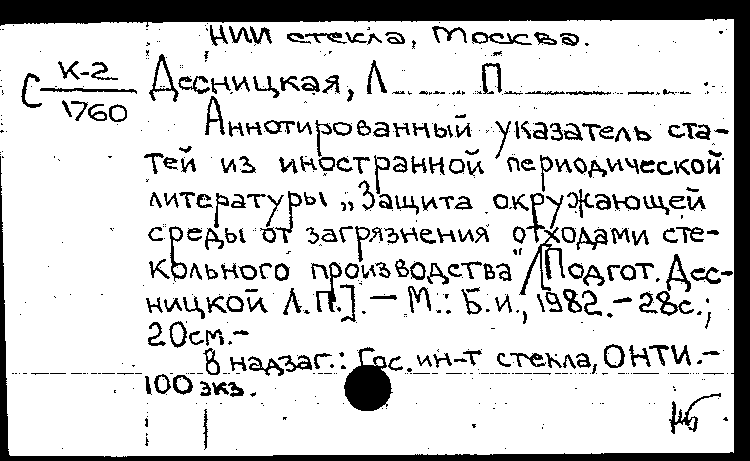 НИИ стекла, Москва.
С К-2
1760
Десницкая, Л. П.
Аннотированный указатель ста-
тей из иностранной периодической
литературы „Защита окружающей
среды от загрязнения отходами сте-
кольного производства" / [Подгот. Дес-
ницкой Л. П.]. — М.: Б. и., 1982. — 28с.;
20см. —
В надзаг.: Гос. ин-т стекла, ОНТИ. —
100 экз.